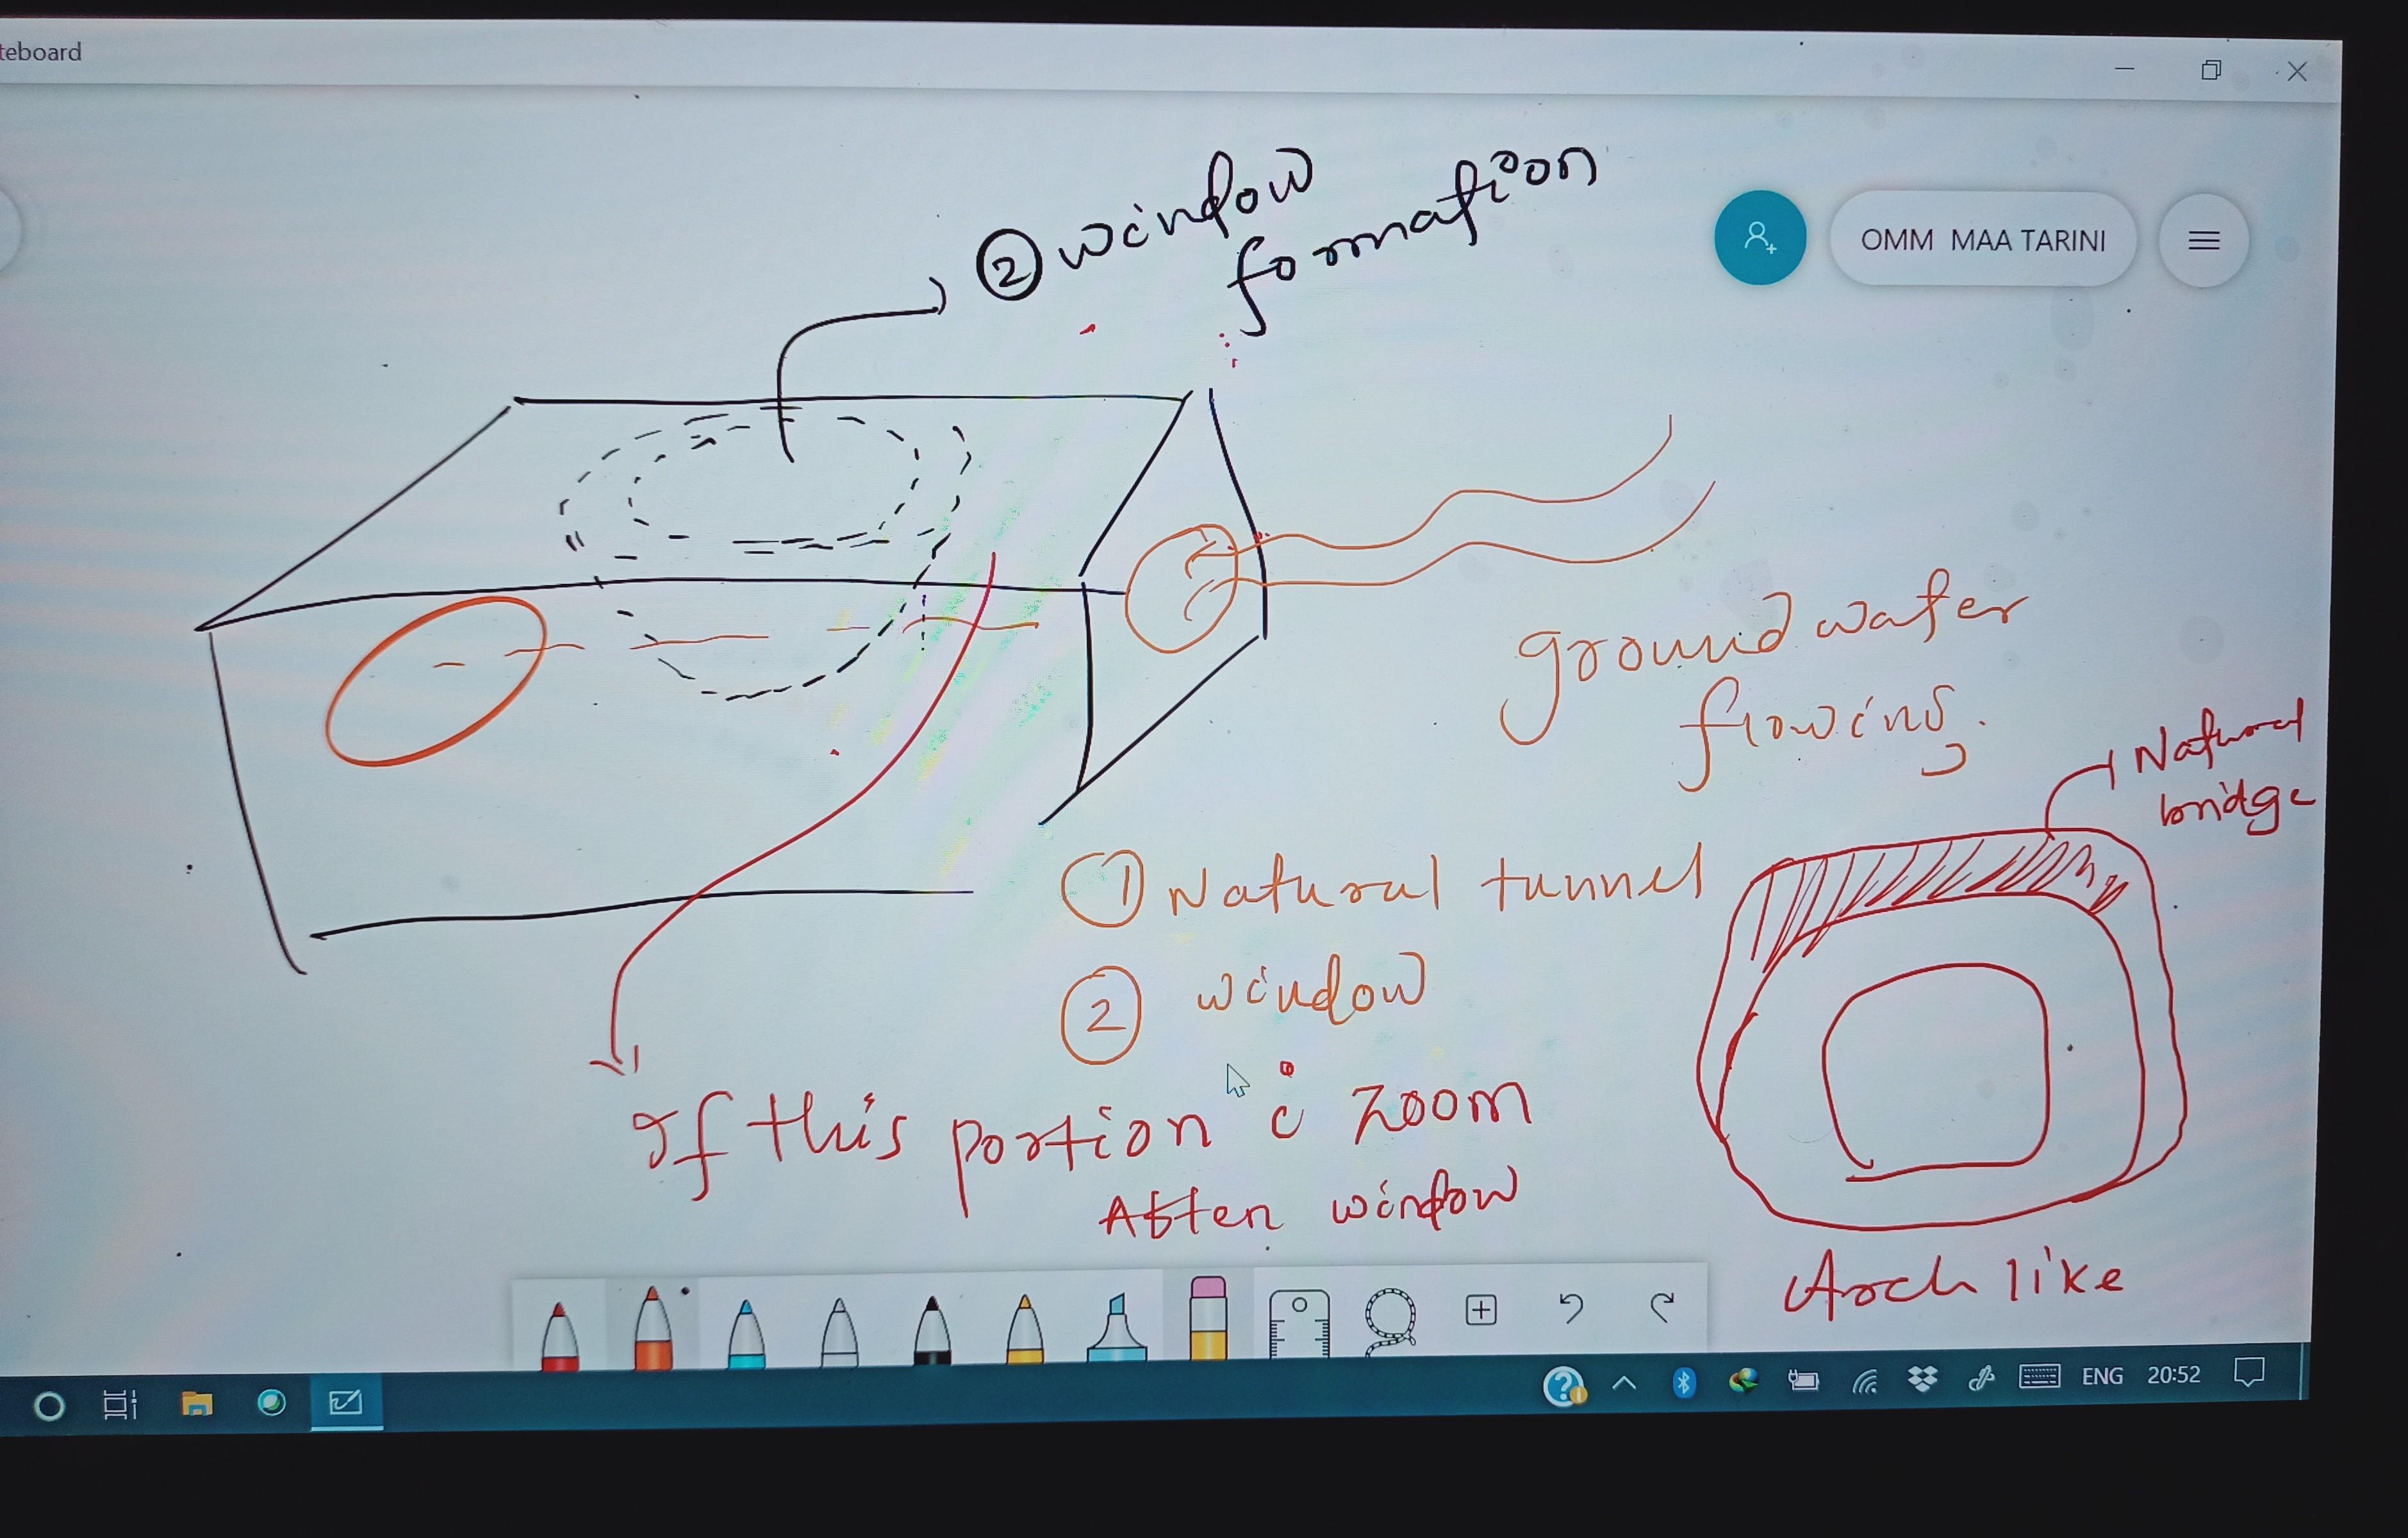 teboard
② window
formation
OMM MAA TARINI
groundwater
flowing.
Natural
bridge
① Natural tunnel
② window
If this portion i zoom
After window
Arch like
ENG 20:52